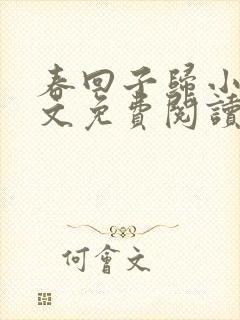 春回子歸小
文免費閱讀
何會文